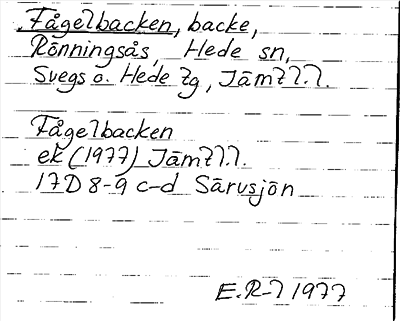 Fågelbacken, backe,
Rönningsås, Hede sn,
Svegs o. Hede tg, Jämtl.l.
Fågelbacken
ek (1977) Jämtl.l.
17D 8-9 c-d Särvsjön
E.R-l 1977